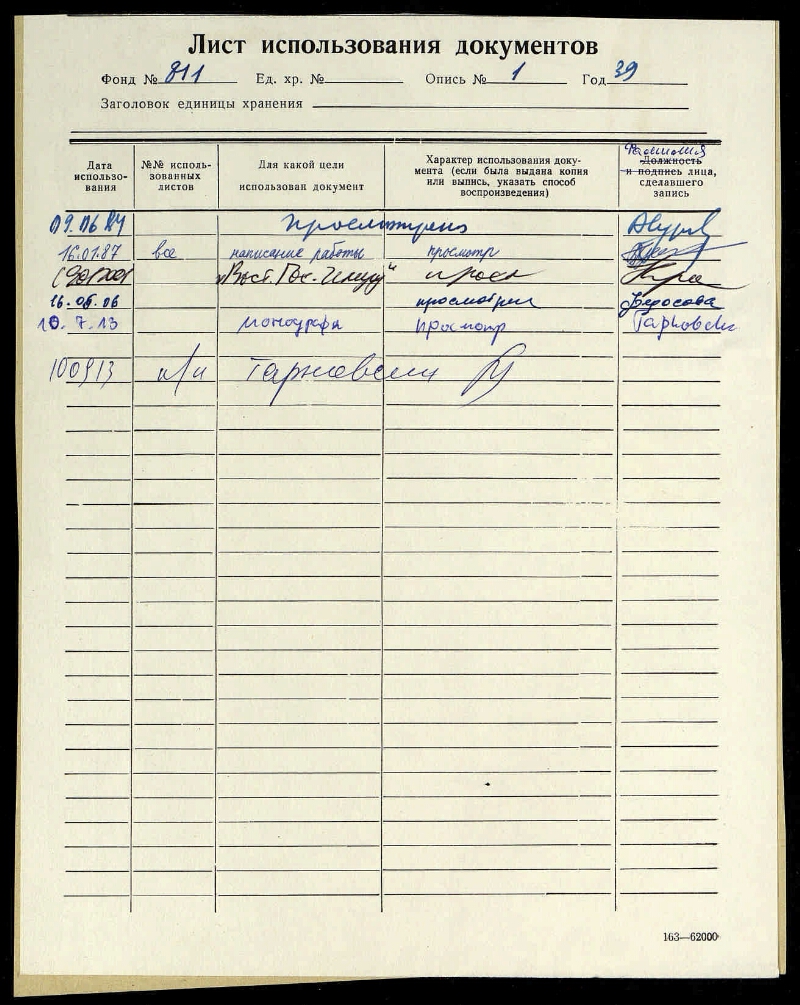 Лист использования документов
Фонд № 811 Ед. хр. № Опись № 1 Год 39
Заголовок единицы хранения
Дата использования
№№ использованных листов
Для какой цели использован документ
Характер использования документа (если была выдана копия или выпись, указать способ воспроизведения)
Фамилия
Должность
и подпись лица, сделавшего запись
09.06.84 просмотрено
16.01.87 все написание работы просмотр
16.05.06 просмотрен
10.7.13 монография просмотр Тарновски
100913 п/и Тарновски
163—62000